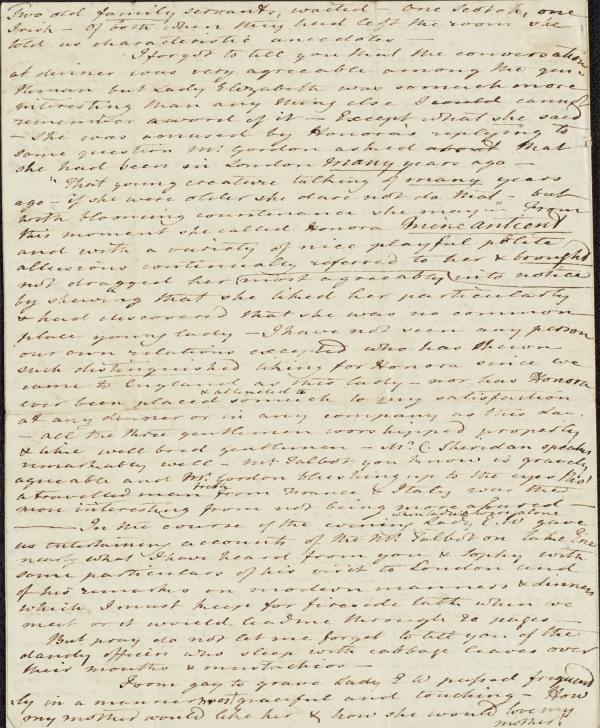 Two old family servants, waited – one Scotch, one
Irish – Of both when they had left the room she
told us characteristic anecdotes –
I forgot to tell you that the conversation
at dinner was very agreeable among the gen-
tlemen but Lady Elizabeth was so much more
interesting than any thing else I could cannot
remember a word of it – Except what she said
– She was amused by Honora's replying to
some question Mr. Gordon asked about that
she had been in London many years ago –
"That young creature talking of many years
ago – if she were older she dare not do that – but
with blooming countenance she may –" From
this moment she called Honora Mine antient
and with a variety of nice playful polite
allusions continually referred to her & brought
not dragged her (most agreeably) into notice
by shewing that she liked her particularly
& had discovered that she was no common-
place young lady – I have not seen any person
our own relations excepted who has shewn
such distinguished liking for Honora since we
came to England as this lady – nor has Honora
& attended to
ever been placed so much to my satisfaction
at any dinner or in any company as this day
– all the three gentlemen worshipped properly
& like well bred gentlemen – Mr. C. Sheridan speaks
remarkably well – Mr Talbot you know is gravely
agreeable and Mr. Gordon blushing up to the eyes tho'
a travelled man fresh from France & Italy was the
more interesting from not being more abused –
– In the course of the evening Lady E. W gave
us entertaining accounts of the Mr. Talbot on Lake Erie
nearly what I have heard from you & Sophy with
some particulars of his visit to London and
of his remarks on modern manners & dinners
which I must keep for fireside talk when we
meet or it would lead me through 20 pages –
But pray do not let me forget to tell you of the
dandy officers who sleep with cabbage leaves over
their mouths & mustachios –
From gay to grave Lady E W passed frequent
ly in a manner most graceful and touching – How
my mother would like her & how she would love my
mother!